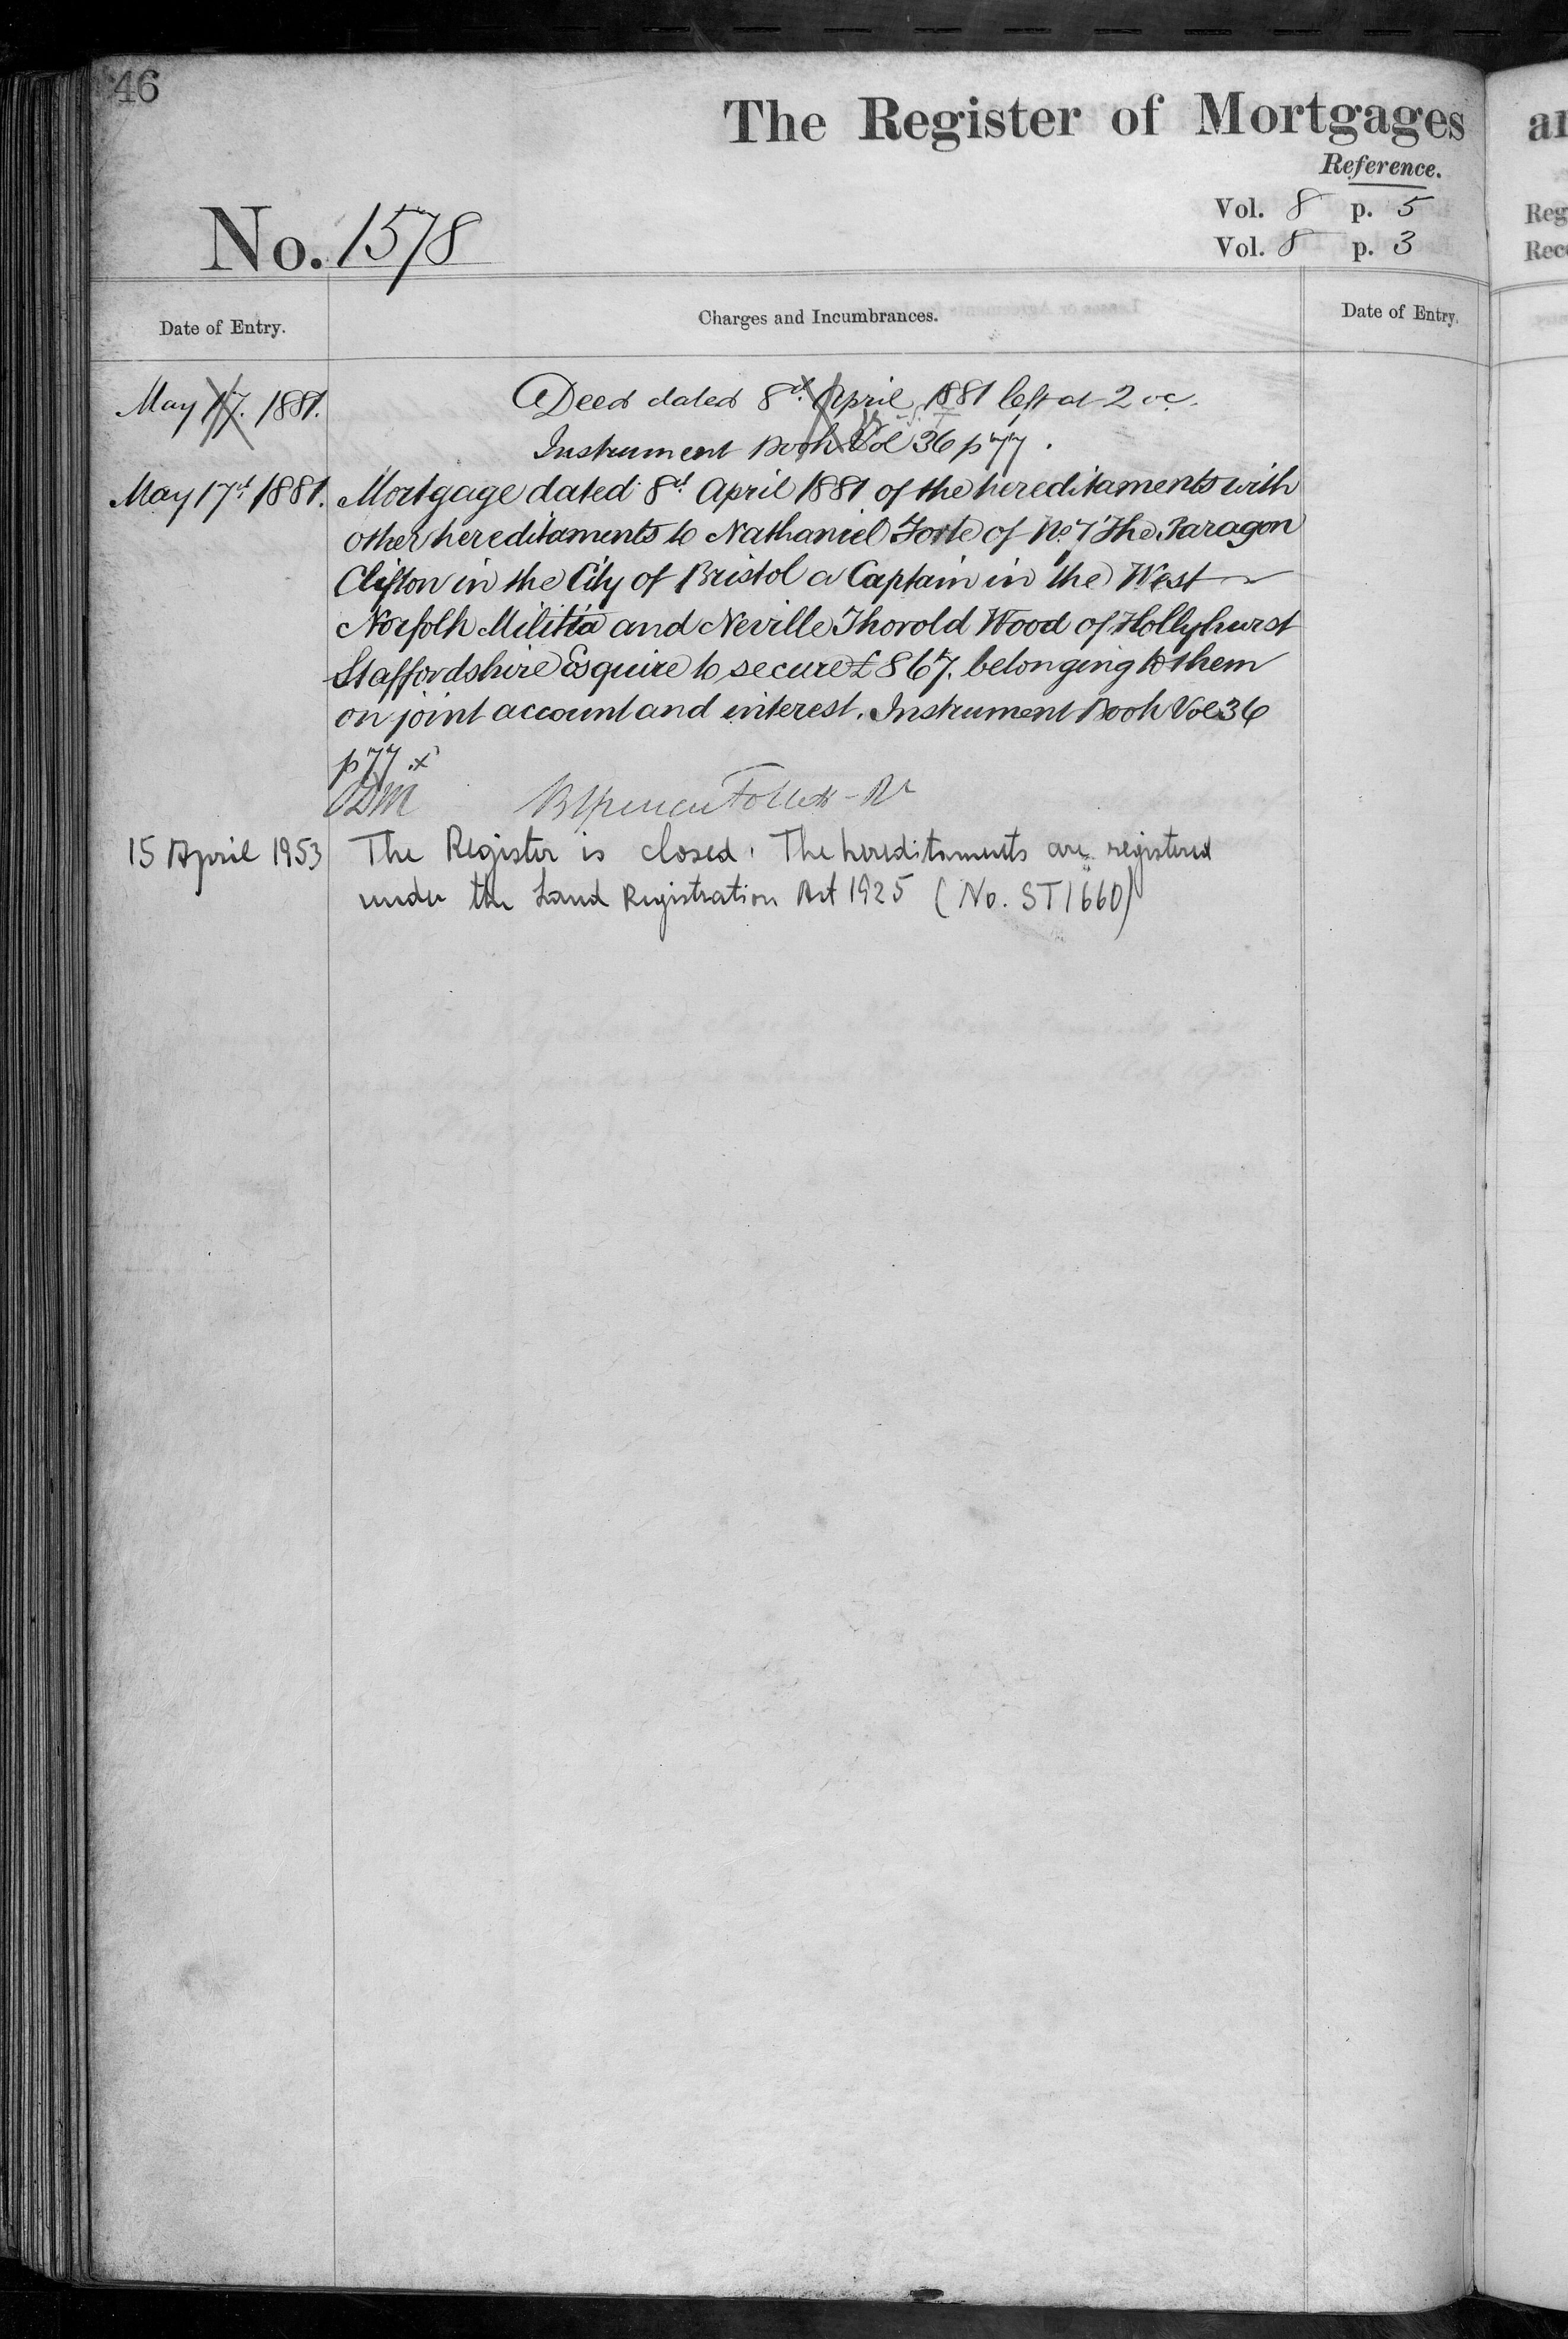 46
The Register of Mortgages
Reference.
Vol. 8 p. 5
No. 1578
Vol. 8 p. 3
Date of Entry.
Charges and Incumbrances.
Date of Entry.
May 17. 1881. Deed dated 8th April 1881 left at 2 oc.
Instrument Book Vol 36 p 77.
May 17th 1881. Mortgage dated 8th April 1881 of the hereditaments with
other hereditaments to Nathaniel Forte of No 7 The Paragon
Clifton in the City of Bristol a Captain in the West
Norfolk Militia and Neville Thorold Wood of Hollyhurst
Staffordshire Esquire to secure £867. belonging to them
on joint account and interest. Instrument Book Vol 36
p 77. x
15 April 1953 The Register is closed. The hereditaments are registered
under the Land Registration Act 1925 (No. ST1660)
Reg